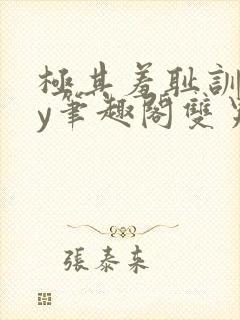 極其羞耻訓
y筆趣閣雙
張泰来